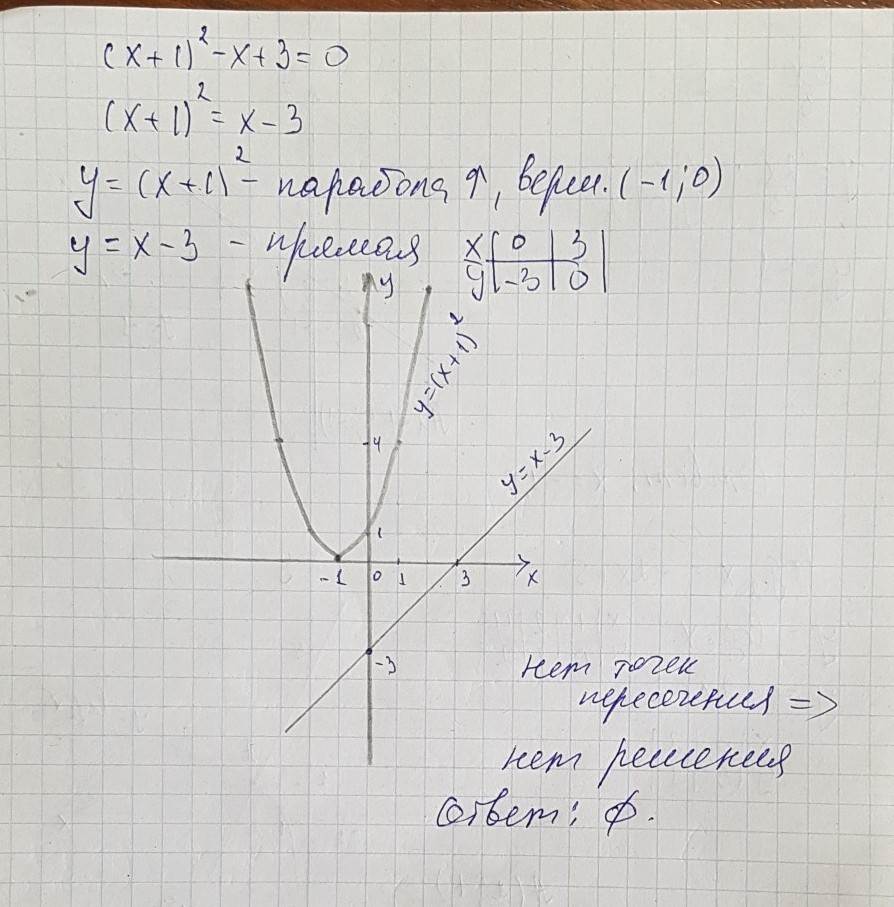 (x+1)² - x + 3 = 0
(x+1)² = x - 3
y = (x+1)² - парабола ↑, верш. (-1; 0)
y = x - 3 - прямая x | 0 | 3 |
y | -3 | 0 |
y
y=(x+1)²
4
y=x-3
1
-1 0 1 3 x
-3
нет точек
пересечения =>
нет решения
Ответ: ∅.